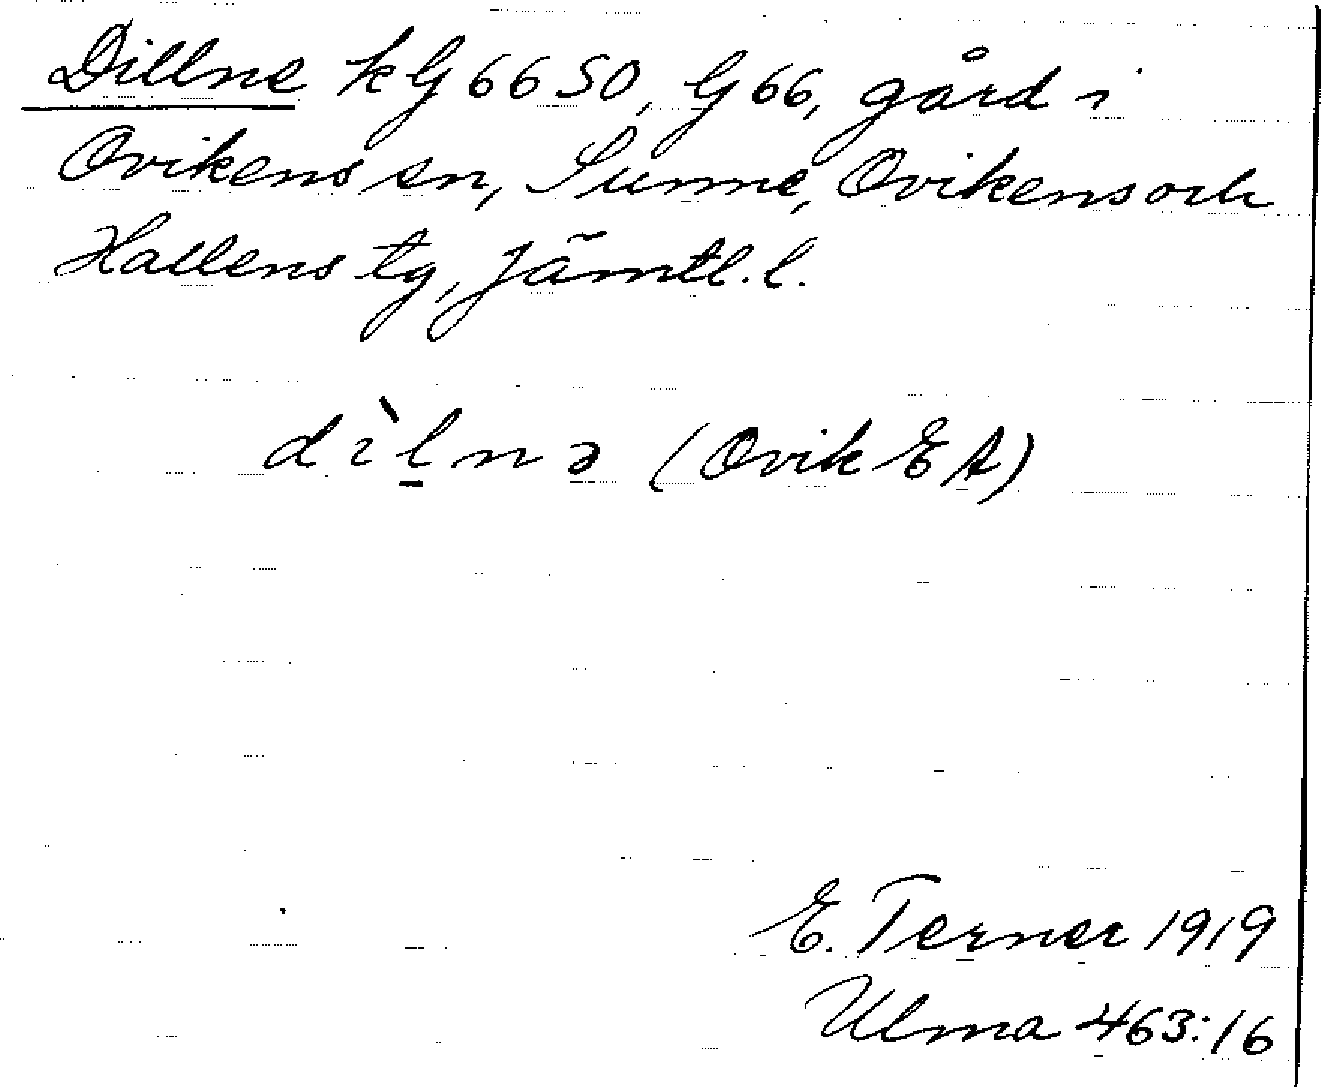 Dillne kG 66 50, G 66, gård i
Ovikens sn, Sunne, Ovikens och
Hallens tg, Jämtl. l.
dìl̠nə (Ovik EA)
E. Terner 1919
Ulma 463:16